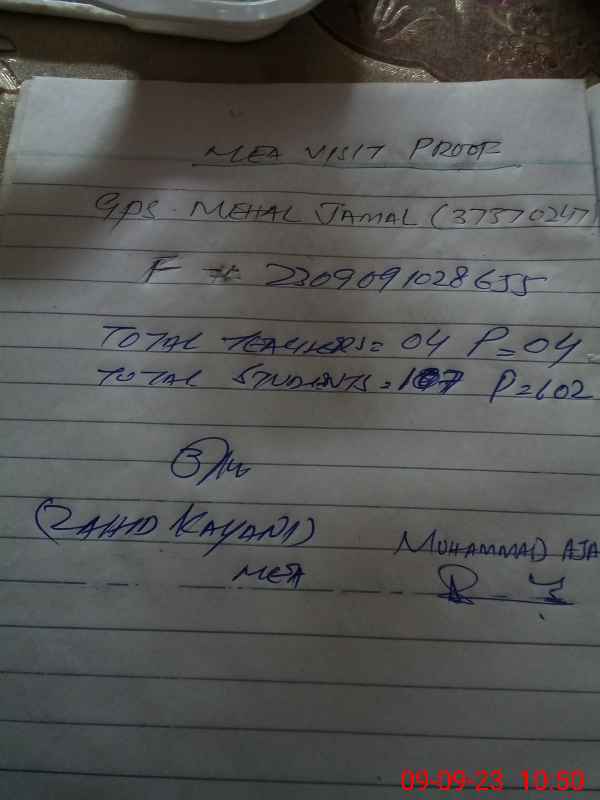 MEA VISIT PROOF
GPS. MEHAL JAMAL (37370247)
F # 2309091028655
TOTAL TEACHERS = 04 P = 04
TOTAL STUDENTS = 107 P = 102
(ZAHID KAYANI)
MUHAMMAD AJA
MEA
09-09-23 10:50